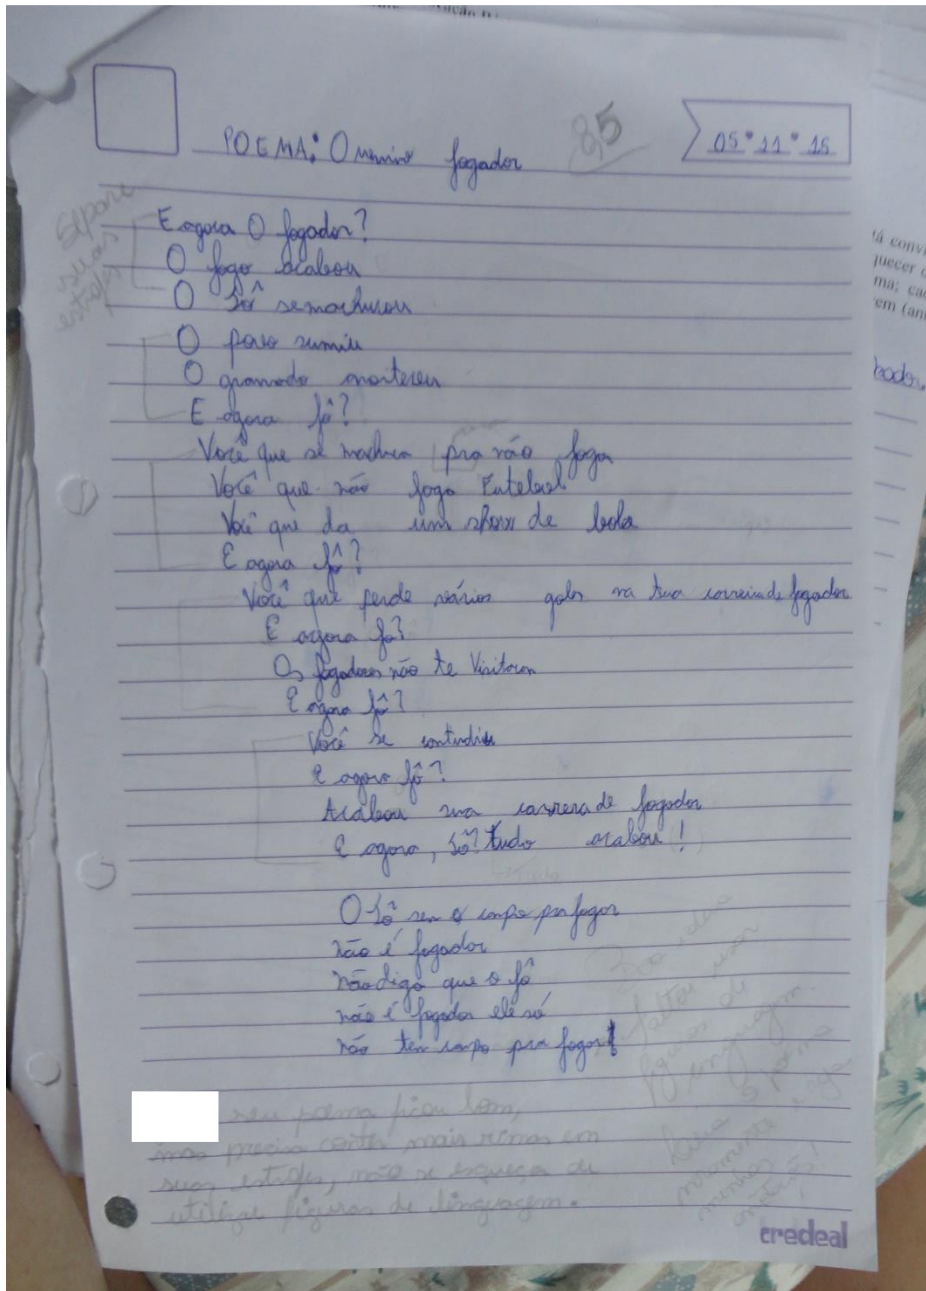 POEMA: O menino jogador
8,5
05 11 15
Separe
suas
estrofes
E agora O jogador?
O jogo acabou
O Jô semachucou
O povo sumiu
O gramado anoiteceu
E agora jô?
Você que se machuca pra não joga
Você que não joga Futebol
Você que da um show de bola
E agora jô?
Você que perde vários gols na tua carreirade jogador
E agora jo?
Os jogadores não te Visitaram
E agora jô?
Você se contudiu
E agora jô?
Acabou sua carrerade jogador
E agora, Jô? tudo acabou!
O Jô sem o campo pra jogar
não é jogador
nãodigo que o jô
não é jogador ele só
não tem campo pra jogar
Boa ideia
faltou usar
figuras de
linguagem.
Leia o poema
novamente e veja
minhas
seu poema ficou bom,
mas precisa conter mais rimas em
suas estrofes, não se esqueça de
utilizar figuras de linguagem.
credeal